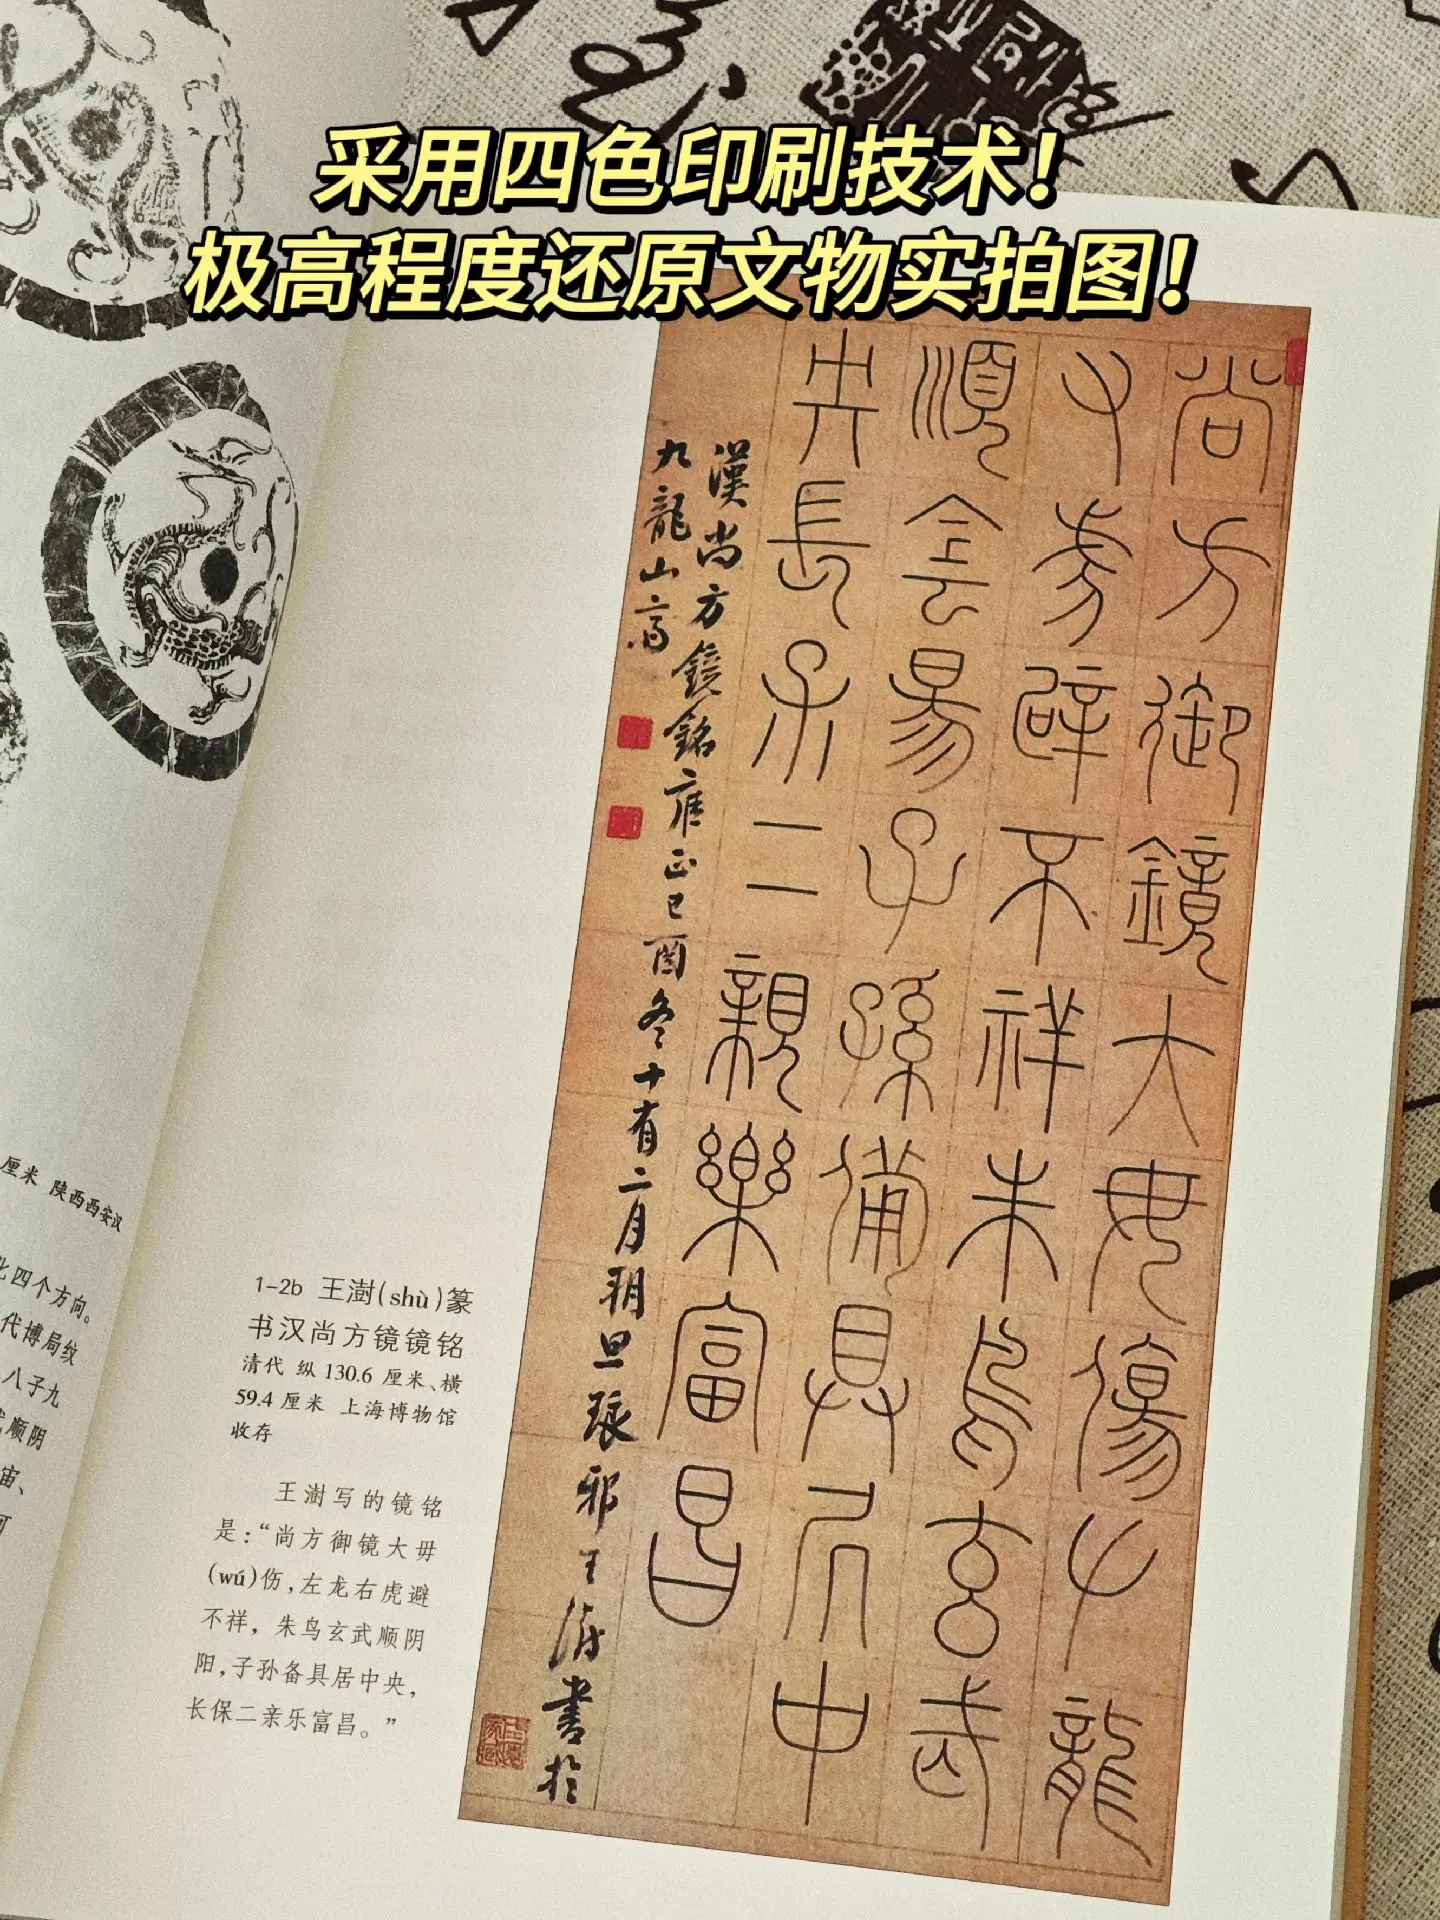 采用四色印刷技术!
极高程度还原文物实拍图!
尚方御鏡大毋傷𠂇龍
又虎辟不祥朱鳥玄武
順侌昜子孫備具凥中
央長保二親樂富昌
漢尚方鏡銘雍正己酉冬十有二月朔旦琅邪王澍書於
九龍山齋
1-2b 王澍(shù)篆
书汉尚方镜镜铭
清代 纵 130.6 厘米、横
59.4 厘米 上海博物馆
收存
王澍写的镜铭
是:“尚方御镜大毋
(wú)伤,左龙右虎避
不祥，朱鸟玄武顺阴
阳,子孙备具居中央，
长保二亲乐富昌。”
厘米 陕西西安汉
北四个方向。
代博局纹
八子九
武顺阴
宙、